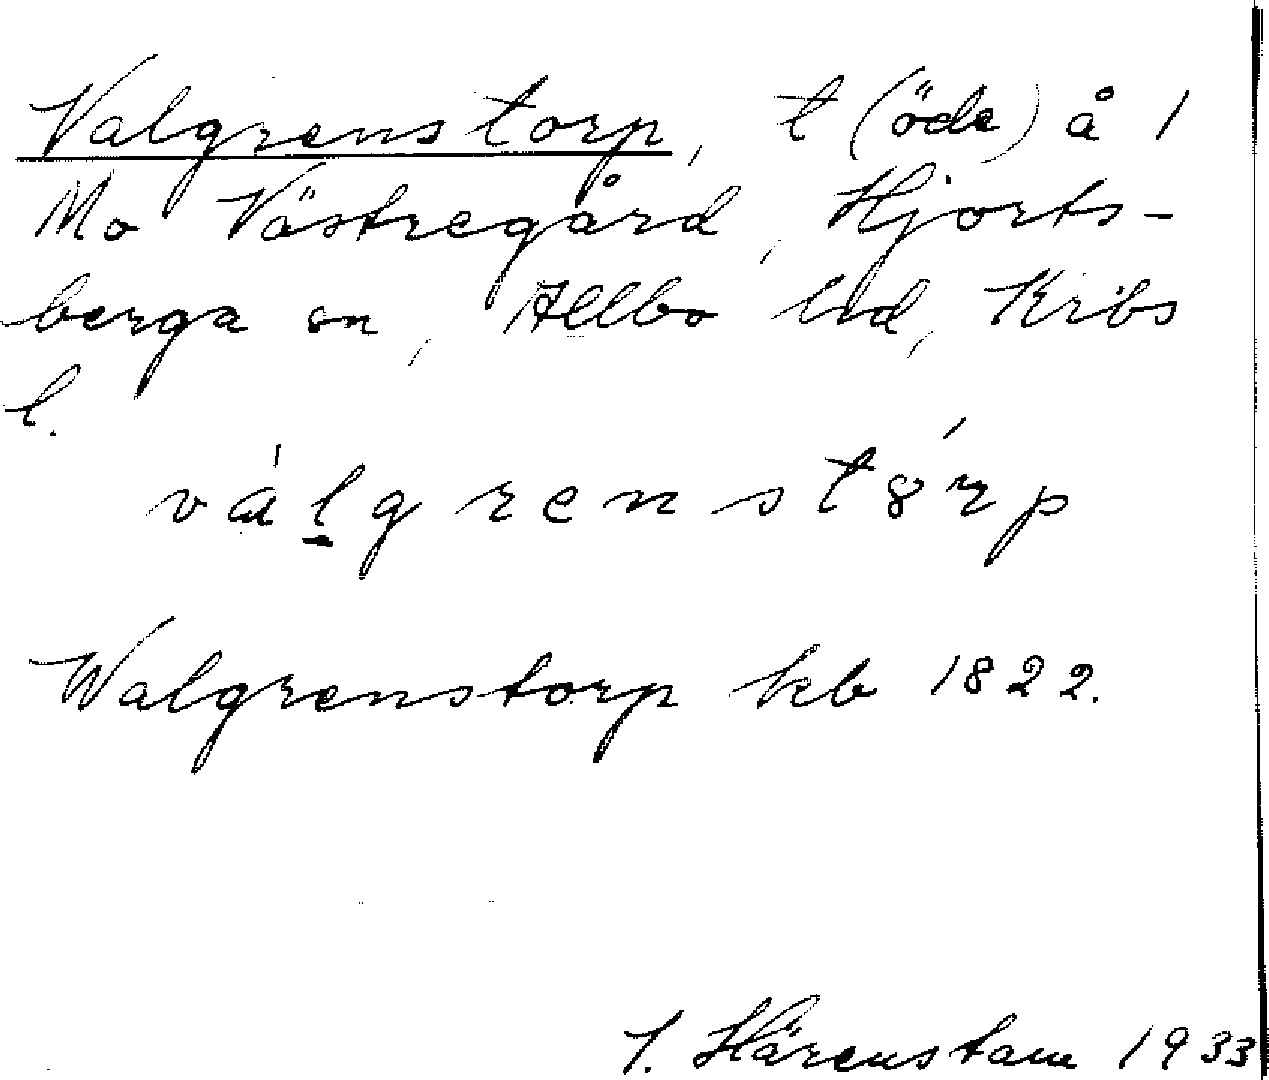 Valgrenstorp, t (öde) å 1
Mo Västregård, Hjorts-
berga sn, Allbo hd, Krbs
l.
válgrenstórp
Walgrenstorp kb 1822.
J. Härenstam 1933